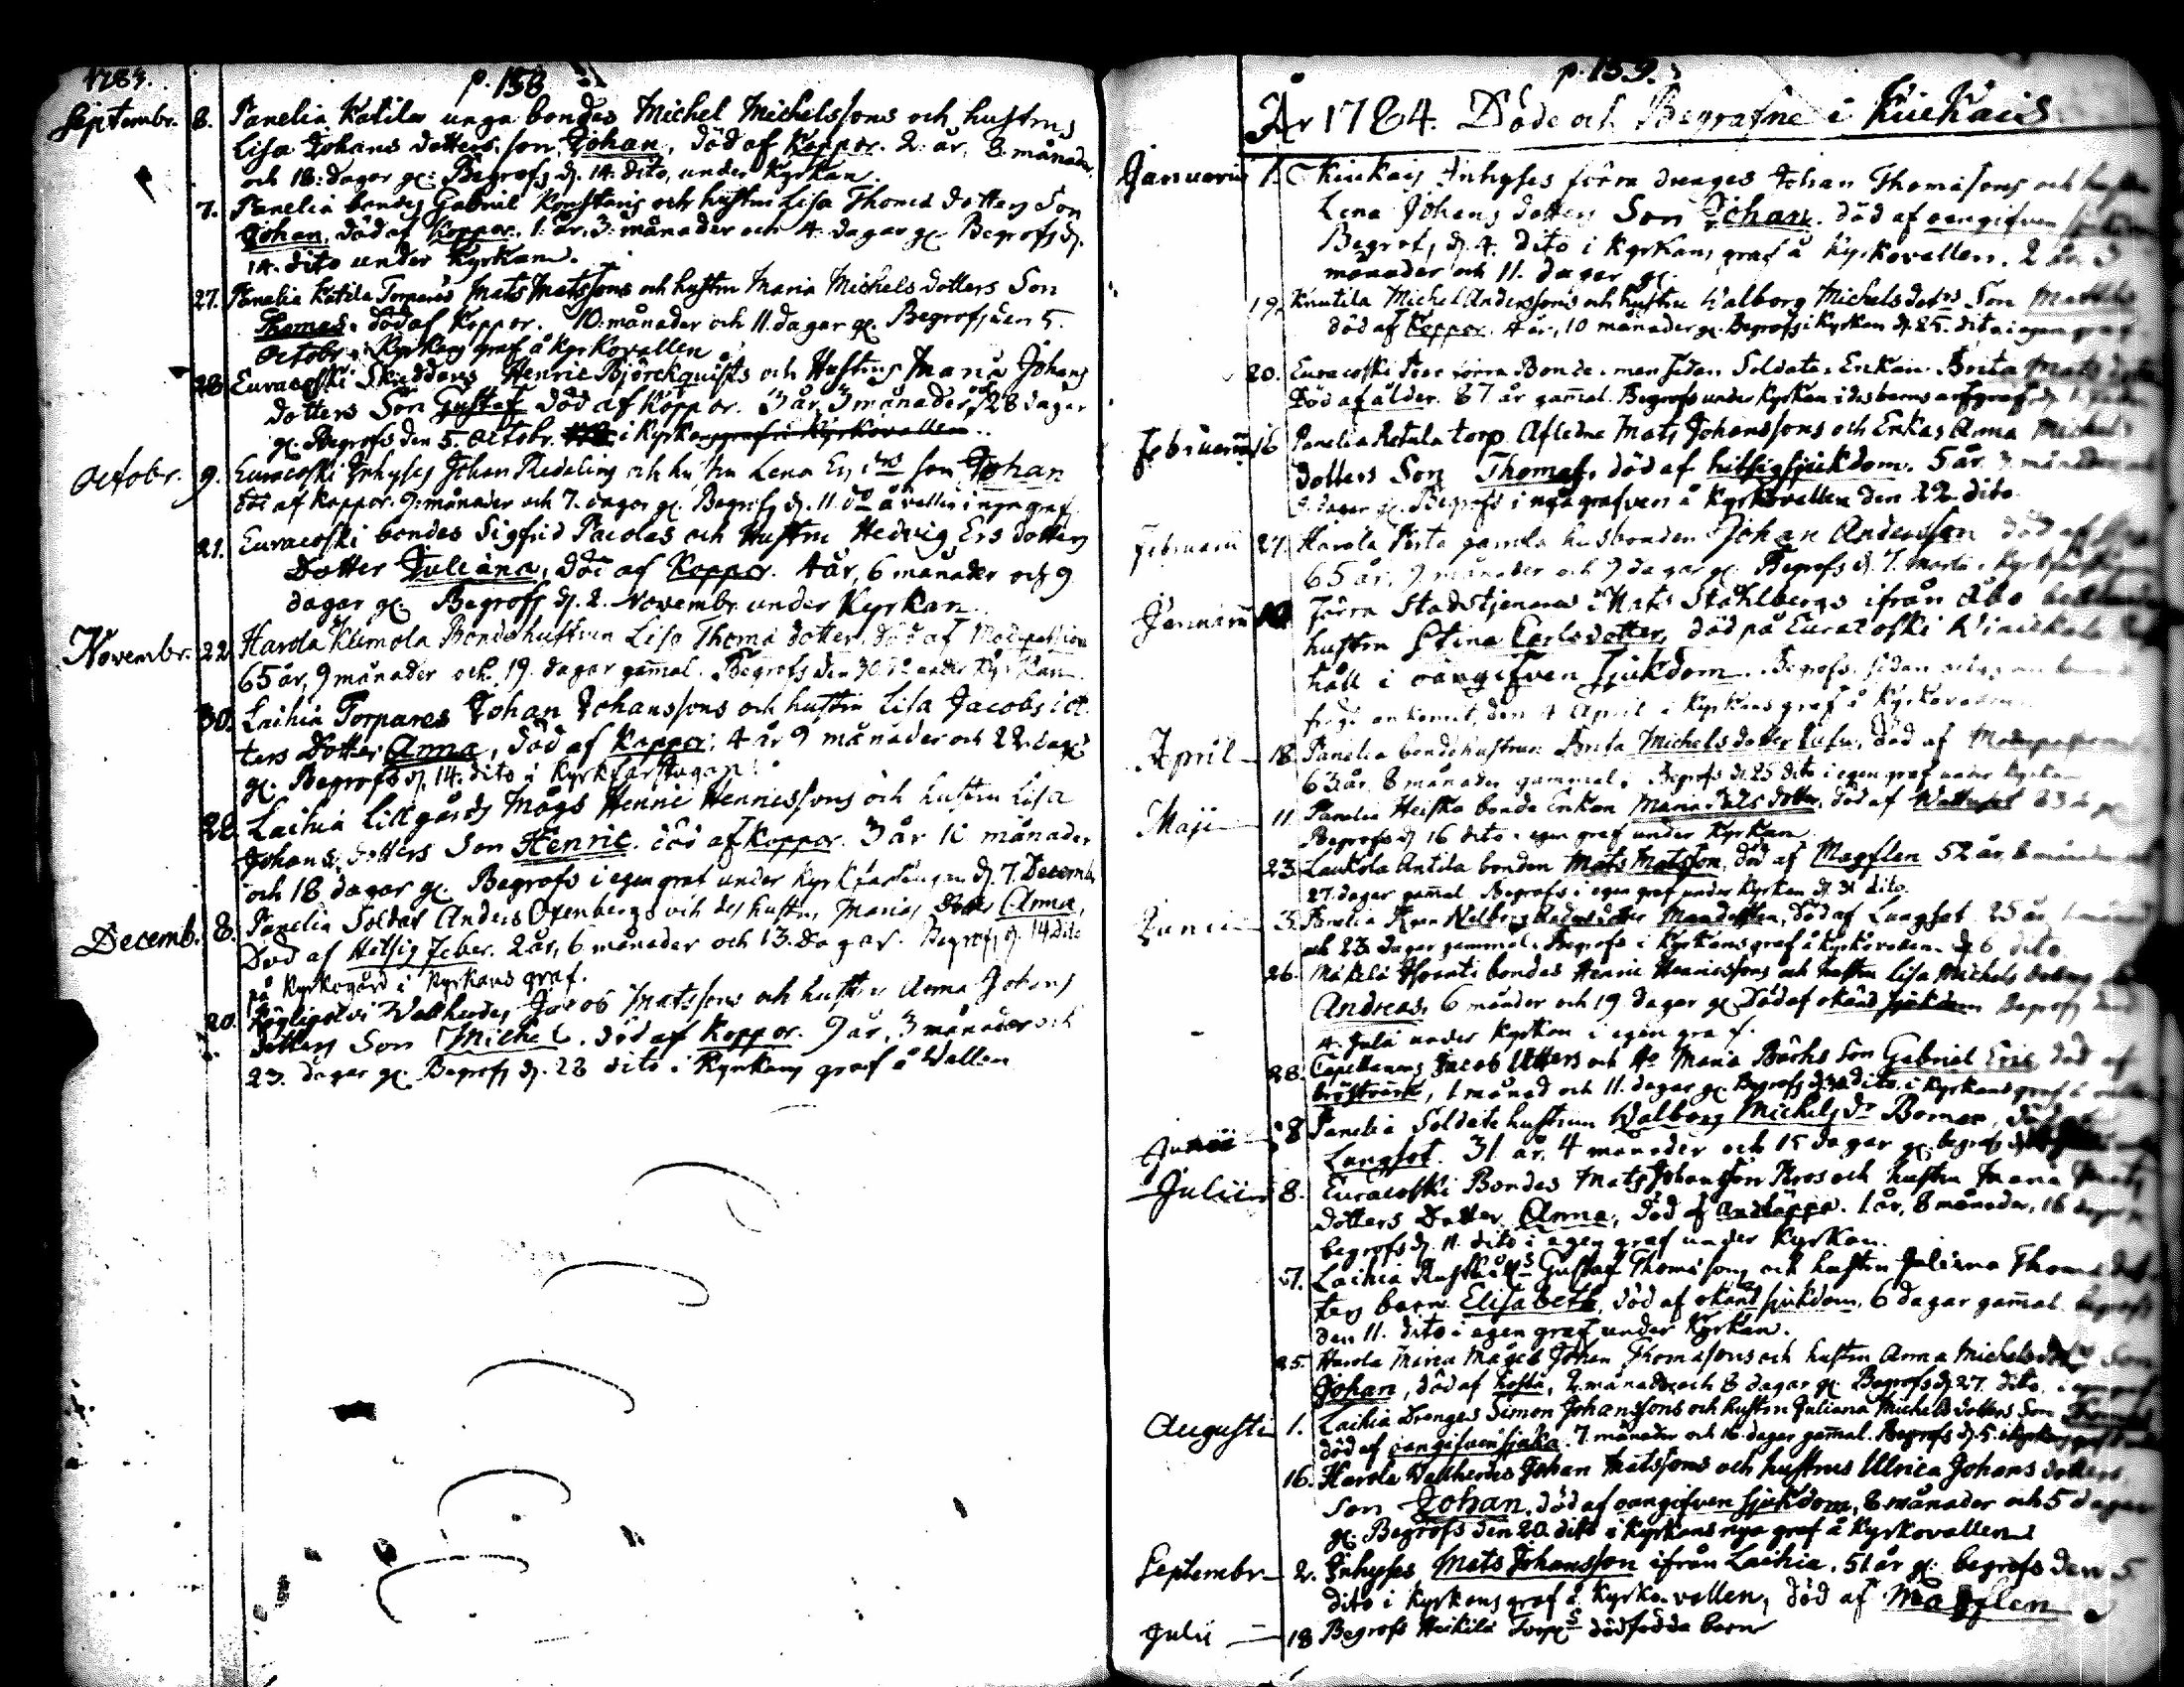 1783.
p. 158
Septembr. 8. Panelia Katila unga bondes Michel Michelssons och hustrus
Lisa Johans dotters son Johan, död af Koppor. 2 år, 8 månader
och 18: dagar gl: Begrofs d. 14. dito, under Kyrkan.
7. Panelia bondes Gabriel Konstaris och hustru Lisa Thomæ dotters Son
Johan, död af Koppor. 1. år, 3. månader och 4. dagar gl. Begrofs d.
14. dito under Kyrkan.
27. Panelia Katila Torpares Mats Matssons och hustru Maria Michels dotters Son
Thomas. död af Koppor. 10. månader och 11. dagar gl. Begrofs den 5.
Octobr. i Kyrkans graf å kyrkovallen
28. Euracoski Skräddares Henric Björckquists och Hustrus Maria Johans
dotters Son Gustaf död af Koppor. 3 år, 3 månader och 28 dagar
gl. Begrofs den 5. Octobr. i Kyrkans graf å Kyrkovallen.
Octobr. 9. Euracoski Inhyses Johan Redeling och hustru Lena Ers drs son Johan
död af Koppor. 9: månader och 7. dagar gl. Begrofs d. 11. do å vallen i nya graf.
21. Euracoski bondes Sigfrid Pacolas och Hustru Hedvig Ers dotters
Dotter Juliana, död af Koppor. 4 år, 6 månader och 9
dagar gl. Begrofs d. 2. Novembr. under Kyrkan.
Novembr. 22. Harola Klemola Bondehustrun Lisa Thomæ dotter, död af
65 år, 9 månader och 19. dagar gammal. Begrofs den 30. do under Kyrkan.
30. Laihia Torpares Johan Johanssons och hustru Lisa Jacobs dot
ters Dotter Anna, död af Koppor. 4 år 9 månader och 22. dagar
gl. Begrofs d. 14. dito i Kyrkfarstugan.
28. Laihia Lillgårds Mågs Henric Henricssons och hustru Lisa
Johans dotters Son Henric. död af Koppor. 3 år 10 månader
och 18 dagar gl. Begrofs i egen graf under Kyrkfarstugan d. 7. Decemb.
Decemb. 8. Panelia Soldat Anders Oxenbergs och des hustru Marias dotter Anna,
Död af Hetsig feber. 2 år, 6 månader och 13. dagar. Begrofs d. 14 dito
på Kyrkogård i Kyrkans graf.
20. Wallherdes Jacob Matssons och hustru Anna Johans
dotters Son Michel. död af Koppor. 9 år, 3 månader och
23. dagar gl. Begrofs d. 28 dito i Kyrkans graf å Wallen
p. 159.
År 1784. Döde och Begrafne i Kiukais
Januarii 1. Kiukais Inhyses förra drenges Johan Thomæsons och hustru
Lena Johans dotters Son Johan. död af oangifven
Begrofs d. 4. dito i Kyrkans graf å Kyrkovallen. 2 år 3
månader och 11. dagar gl.
19. Knutila Michel Anderssons och hustru Walborg Michelsdotrs Son
död af Koppor. 4 år, 10 månader gl. Begrofs i Kyrkan d. 25. dito i egen graf
20. Euracoski förra Bonde, men sedan Soldats Enkan Brita Mats dotter
Död af ålder. 87 år gammal. Begrofs under Kyrkan i des barns arfgraf
Februarii 16 Panelia torp. Afledne Mats Johanssons och Enkas Anna Michels
dotters Son Thomas, död af hitsig sjukdom. 5 år månader och
dagar gl. Begrofs i nya grafven å Kyrkovallen den 22. dito
Februarii 27. Harola Perta gamla husbonden Johan Andersson död af
65 år, 9 månader och 9 dagar gl. Begrofs d. 7. Martii
Januarii Förra Stadstjenares Mats Stahlbergs ifrån Åbo
hustru Stina Carlsdotter, död på Euracoski
håll i oangifven sjukdom. Begrofs sedan
ankommit, den 4 April i Kyrkans graf å Kyrkovallen.
April 18. Panelia bondehustrun Brita Michelsdotter död af
63 år, 8 månader gammal. Begrofs d. 25 dito i egen graf under Kyrkan
Maji 11. Panelia Heiska bonde Enkan Maria dotter, död af 83 år gl.
Begrofs d. 16 dito i egen graf under Kyrkan.
23. Laukola Antila bonden Mats Matsson, död af Magflen 52 år, 8 månader och
27. dagar gammal. Begrofs i egen graf under Kyrkan d. 31 dito.
Junii 3. Panelia död af Lungsot 25 år
och 23. dagar gammal. Begrofs i Kyrkans graf å Kyrkovallen. d. 6 dito
26. Mäkelä bondes Henric Henricssons och hustru Lisa Michels dotters
Andreas, 6 månder och 19 dagar gl. Död af okänd sjukdom Begrofs
4. Julii under Kyrkan i egen graf.
28. Capellanens Jacob Utters och Ho Maria Bachs Son Gabriel Eric död af
bröstvärk, 1 månad och 11. dagar gl. Begrofs d. 30. dito i Kyrkans graf å
Junii 8 Panelia Soldatehustrun Walborg Michelsdr Boman, död af
Lungsot. 31 år. 4 månader och 15 dagar gl. begrofs
Julii 8. Euracoski Bondes Mats Johansson och hustru Maria Mats
dotters Dotter Anna, död af andtäppa. 1 år, 8 månader, 16 dagar gl.
begrofs d. 11. dito i egen graf under Kyrkan.
7. Laihia Gustaf Thomæsons och hustru Juliana Thomæ dot
ters barn Elisabeth, död af okänd sjukdom, 6 dagar gammal begrofs
den 11. dito i egen graf under Kyrkan.
25. Harola Mågs Johan Thomæsons och hustru Anna Michelsdotr Son
Johan, död af hosta, 2. månader och 8 dagar gl. Begrofs d. 27. dito i egen graf
Augusti 1. Laihia Drenges Simon Johanssons och hustru Juliana Michels dotters Son Thomas
död af oangifven sjuka. 7. månader och 16. dagar gammal. Begrofs d. 5.
16. Harola Wallherdes Johan Matssons och hustrus Ulrica Johans dotters
Son Johan, död af oangifven sjukdom, 8 månader och 5 dagar
gl. Begrofs den 20. dito i Kyrkans nya graf å Kyrkovallen
Septembr. 2. Inhyses Mats Johansson ifrån Laihia. 51 år gl. begrofs den 5
dito i Kyrkans graf å Kyrkovallen, död af Magflen
Julii 18 Begrofs Heikilä Torps dödfödda barn